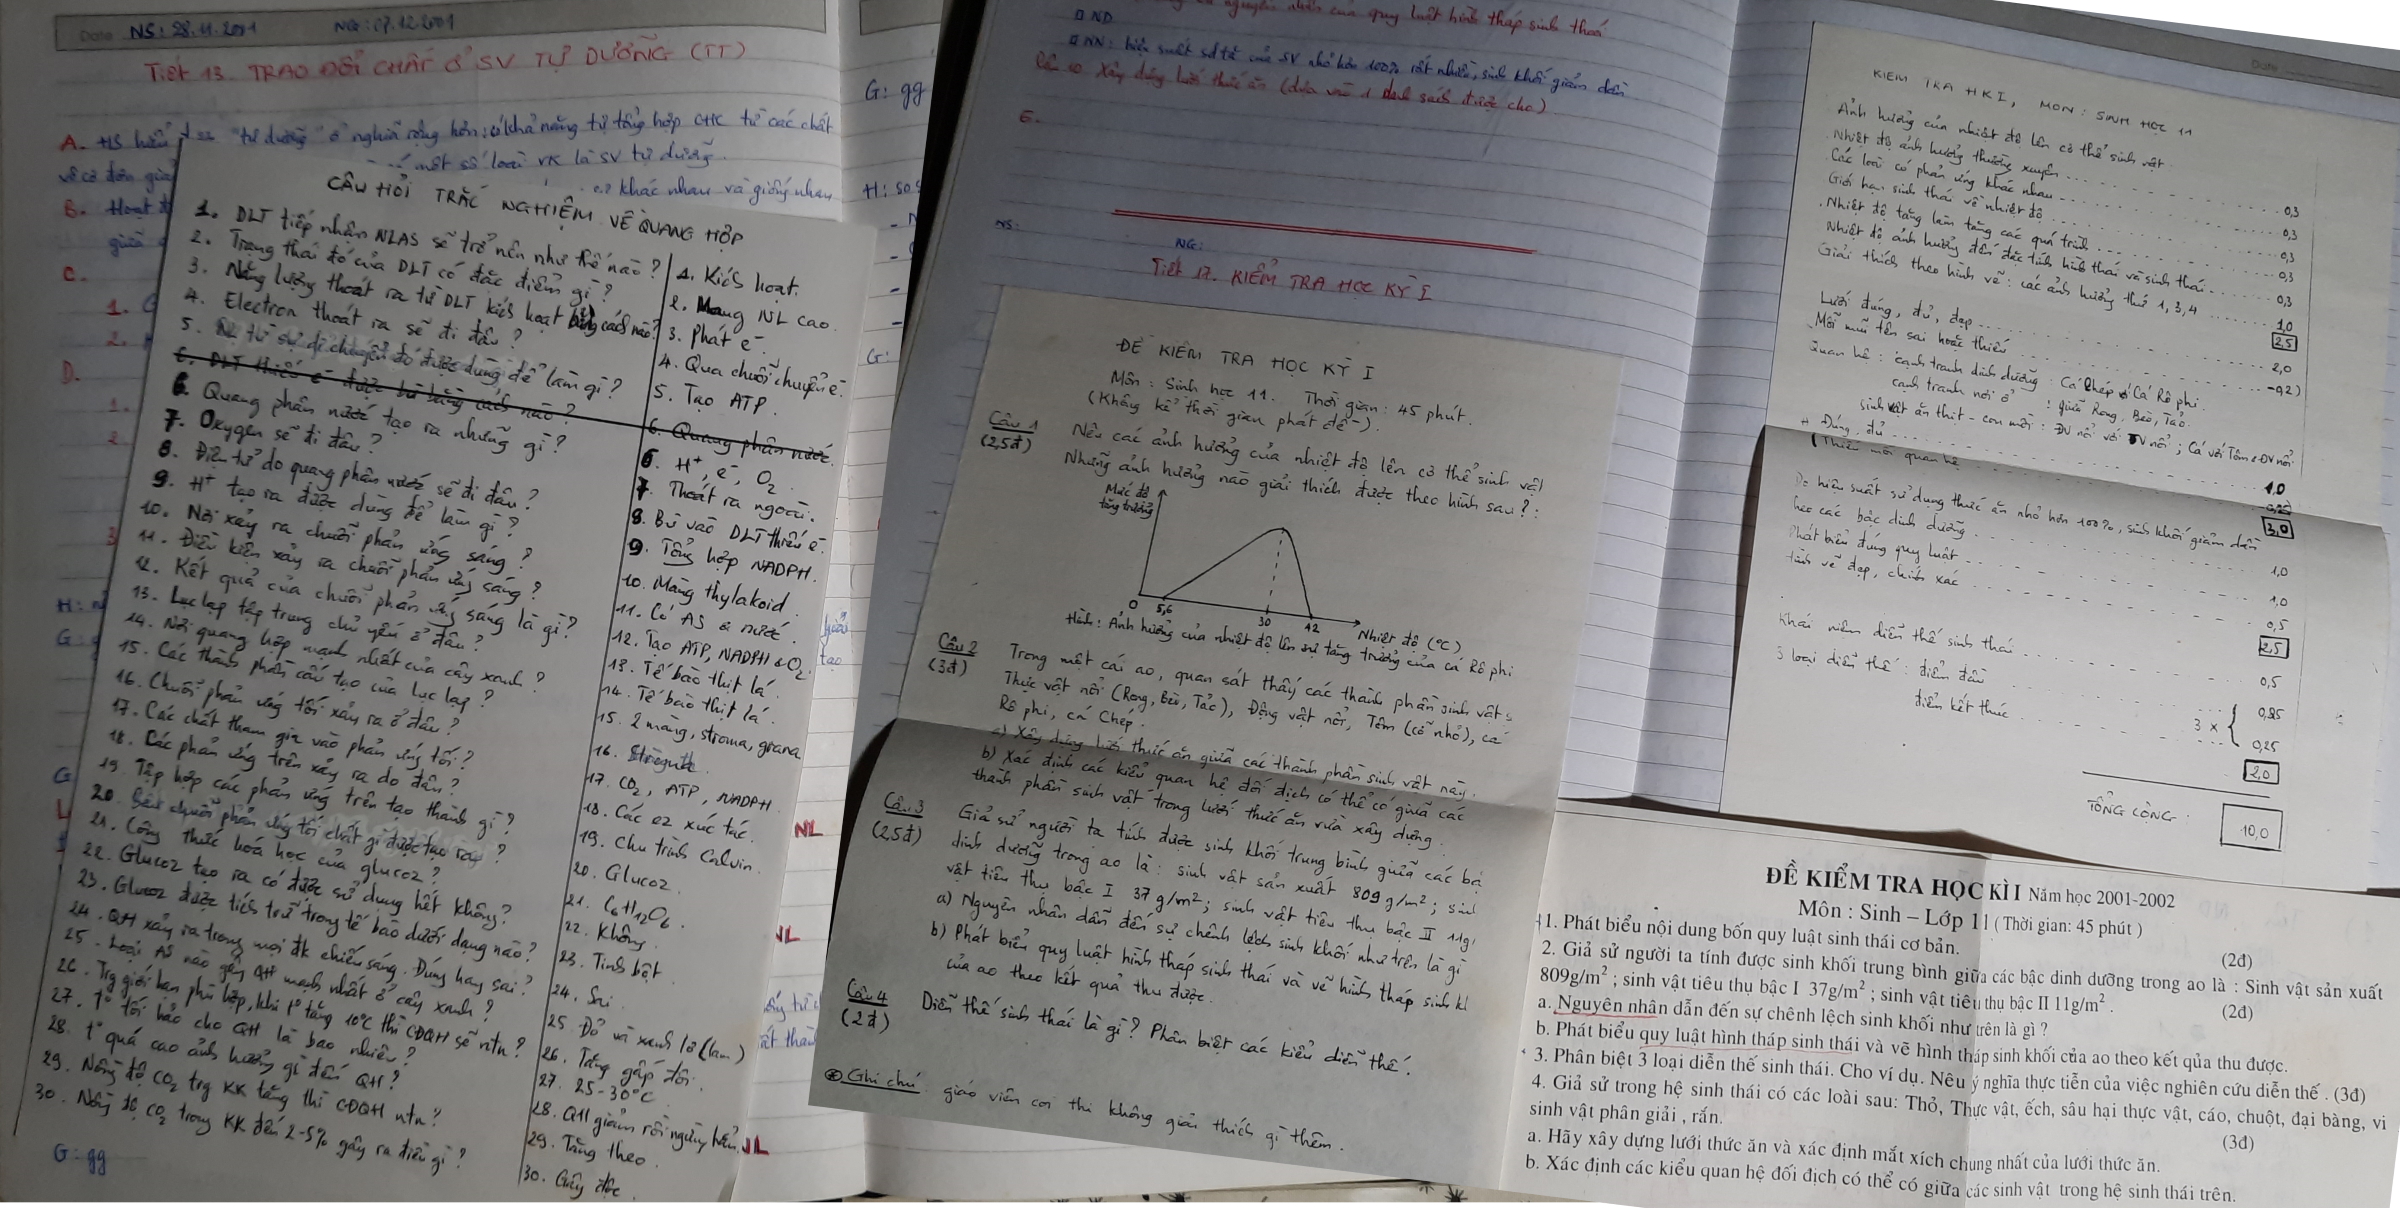 NS: 28.11.2001 NG: 07.12.2001
Tiết 13. TRAO ĐỔI CHẤT Ở SV TỰ DƯỠNG (TT)
A. HS hiểu "tự dưỡng" ở nghĩa rộng hơn: có khả năng tự tổng hợp CHC từ các chất
một số loài VK là SV tự dưỡng.
khác nhau và giống nhau
B. Hoạt
C.
D.
G: gg
CÂU HỎI TRẮC NGHIỆM VỀ QUANG HỢP
1. DLT tiếp nhận NLAS sẽ trở nên như thế nào?
2. Trạng thái đó của DLT có đặc điểm gì?
3. Năng lượng thoát ra từ DLT kích hoạt bằng cách nào?
4. Electron thoát ra sẽ đi đâu?
5. sự di chuyển đó được dùng để làm gì?
6. DLT thiếu e được bù bằng cách nào?
6. Quang phân nước tạo ra những gì?
7. Oxygen sẽ đi đâu?
8. Điện tử do quang phân nước sẽ đi đâu?
9. H+ tạo ra được dùng để làm gì?
10. Nơi xảy ra chuỗi phản ứng sáng?
11. Điều kiện xảy ra chuỗi phản ứng sáng?
12. Kết quả của chuỗi phản ứng sáng là gì?
13. Lục lạp tập trung chủ yếu ở đâu?
14. Nơi quang hợp mạnh nhất của cây xanh?
15. Các thành phần cấu tạo của lục lạp?
16. Chuỗi phản ứng tối xảy ra ở đâu?
17. Các chất tham gia vào phản ứng tối?
18. Các phản ứng trên xảy ra do đâu?
19. Tập hợp các phản ứng trên tạo thành gì?
20. chuỗi phản ứng tối chất gì được tạo ra?
21. Công thức hoá học của glucoz?
22. Glucoz tạo ra có được sử dụng hết không?
23. Glucoz được tích trữ trong tế bào dưới dạng nào?
24. QH xảy ra trong mọi đk chiếu sáng. Đúng hay sai?
25. Loại AS nào gây QH mạnh nhất ở cây xanh?
26. Trg giới hạn phù hợp, khi t° tăng 10°C thì CĐQH sẽ ntn?
27. t° tối hảo cho QH là bao nhiêu?
28. t° quá cao ảnh hưởng gì đến QH?
29. Nồng độ CO2 trg KK tăng thì CĐQH ntn?
30. Nồng độ CO2 trong KK đến 2-5% gây ra điều gì?
1. Kích hoạt.
2. Mang NL cao.
3. Phát e-.
4. Qua chuỗi chuyền e-.
5. Tạo ATP.
6. Quang phân nước.
6. H+, e-, O2.
7. Thoát ra ngoài.
8. Bù vào DLT thiếu e-.
9. Tổng hợp NADPH.
10. Màng thylakoid.
11. Có AS & nước.
12. Tạo ATP, NADPH & O2.
13. Tế bào thịt lá.
14. Tế bào thịt lá.
15. 2 màng, stroma, grana
17. CO2, ATP, NADPH.
18. Các ez xúc tác.
19. Chu trình Calvin.
20. Glucoz.
21. C6H12O6.
22. Không.
23. Tinh bột.
24. Sai.
25. Đỏ và xanh lơ (lam)
26. Tăng gấp đôi.
27. 25-30°C.
28. QH giảm rồi ngừng hẳn.
29. Tăng theo.
30. Gây độc.
G: gg
nguyên nhân của quy luật hình tháp sinh thái
ND
NN: hiệu suất sd tă của SV nhỏ hơn 100% rất nhiều, sinh khối giảm dần
Câu 10. Xây dựng lưới thức ăn (dựa vào 1 danh sách được cho)
E.
NS: NG:
Tiết 17. KIỂM TRA HỌC KỲ I
ĐỀ KIỂM TRA HỌC KỲ I
Môn: Sinh học 11. Thời gian: 45 phút.
(Không kể thời gian phát đề).
Câu 1 (2,5đ) Nêu các ảnh hưởng của nhiệt độ lên cơ thể sinh vật
Những ảnh hưởng nào giải thích được theo hình sau?:
Mức độ tăng trưởng
0 5,6 30 42 Nhiệt độ (°C)
Hình: Ảnh hưởng của nhiệt độ lên sự tăng trưởng của cá Rô phi
Câu 2 (3đ) Trong một cái ao, quan sát thấy các thành phần sinh vật:
Thực vật nổi (Rong, Bèo, Tảo), Động vật nổi, Tôm (cỡ nhỏ), cá
Rô phi, cá Chép.
a) Xây dựng lưới thức ăn giữa các thành phần sinh vật này.
b) Xác định các kiểu quan hệ đối địch có thể có giữa các
thành phần sinh vật trong lưới thức ăn vừa xây dựng.
Câu 3 (2,5đ) Giả sử người ta tính được sinh khối trung bình giữa các bậ
dinh dưỡng trong ao là: sinh vật sản xuất 809g/m2; sinh
vật tiêu thụ bậc I 37g/m2; sinh vật tiêu thụ bậc II 11g/
a) Nguyên nhân dẫn đến sự chênh lệch sinh khối như trên là gì
b) Phát biểu quy luật hình tháp sinh thái và vẽ hình tháp sinh kh
của ao theo kết quả thu được.
Câu 4 (2đ) Diễn thế sinh thái là gì? Phân biệt các kiểu diễn thế.
Ghi chú: giáo viên coi thi không giải thích gì thêm.
KIỂM TRA HKI, MÔN: SINH HỌC 11
Ảnh hưởng của nhiệt độ lên cơ thể sinh vật
Nhiệt độ ảnh hưởng thường xuyên 0,3
Các loài có phản ứng khác nhau 0,3
Giới hạn sinh thái về nhiệt độ 0,3
Nhiệt độ tăng làm tăng các quá trình 0,3
Nhiệt độ ảnh hưởng đến đặc tính hình thái và sinh thái 0,3
Giải thích theo hình vẽ: các ảnh hưởng thứ 1, 3, 4 1,0
2,5
Lưới đúng, đủ, đẹp 2,0
Mỗi mũi tên sai hoặc thiếu -0,2)
Quan hệ: cạnh tranh dinh dưỡng: Cá Chép & Cá Rô phi.
cạnh tranh nơi ở: giữa Rong, Bèo, Tảo.
sinh vật ăn thịt - con mồi: ĐV nổi với TV nổi; Cá với Tôm & ĐV nổi
Đúng, đủ 1,0
(Thiếu mỗi quan hệ 0,25
3,0
Do hiệu suất sử dụng thức ăn nhỏ hơn 100%, sinh khối giảm dần
theo các bậc dinh dưỡng 1,0
Phát biểu đúng quy luật 1,0
Hình vẽ đẹp, chính xác 0,5
2,5
Khái niệm diễn thế sinh thái 0,5
3 loại diễn thế: điểm đầu 0,25
điểm kết thúc 3 x { 0,25
2,0
TỔNG CỘNG: 10,0
ĐỀ KIỂM TRA HỌC KÌ I Năm học 2001-2002
Môn : Sinh – Lớp 11 ( Thời gian: 45 phút )
1. Phát biểu nội dung bốn quy luật sinh thái cơ bản. (2đ)
2. Giả sử người ta tính được sinh khối trung bình giữa các bậc dinh dưỡng trong ao là : Sinh vật sản xuất
809g/m2 ; sinh vật tiêu thụ bậc I 37g/m2 ; sinh vật tiêu thụ bậc II 11g/m2. (2đ)
a. Nguyên nhân dẫn đến sự chênh lệch sinh khối như trên là gì ?
b. Phát biểu quy luật hình tháp sinh thái và vẽ hình tháp sinh khối của ao theo kết qủa thu được.
3. Phân biệt 3 loại diễn thế sinh thái. Cho ví dụ. Nêu ý nghĩa thực tiễn của việc nghiên cứu diễn thế . (3đ)
4. Giả sử trong hệ sinh thái có các loài sau: Thỏ, Thực vật, ếch, sâu hại thực vật, cáo, chuột, đại bàng, vi
sinh vật phân giải , rắn. (3đ)
a. Hãy xây dựng lưới thức ăn và xác định mắt xích chung nhất của lưới thức ăn.
b. Xác định các kiểu quan hệ đối địch có thể có giữa các sinh vật trong hệ sinh thái trên.